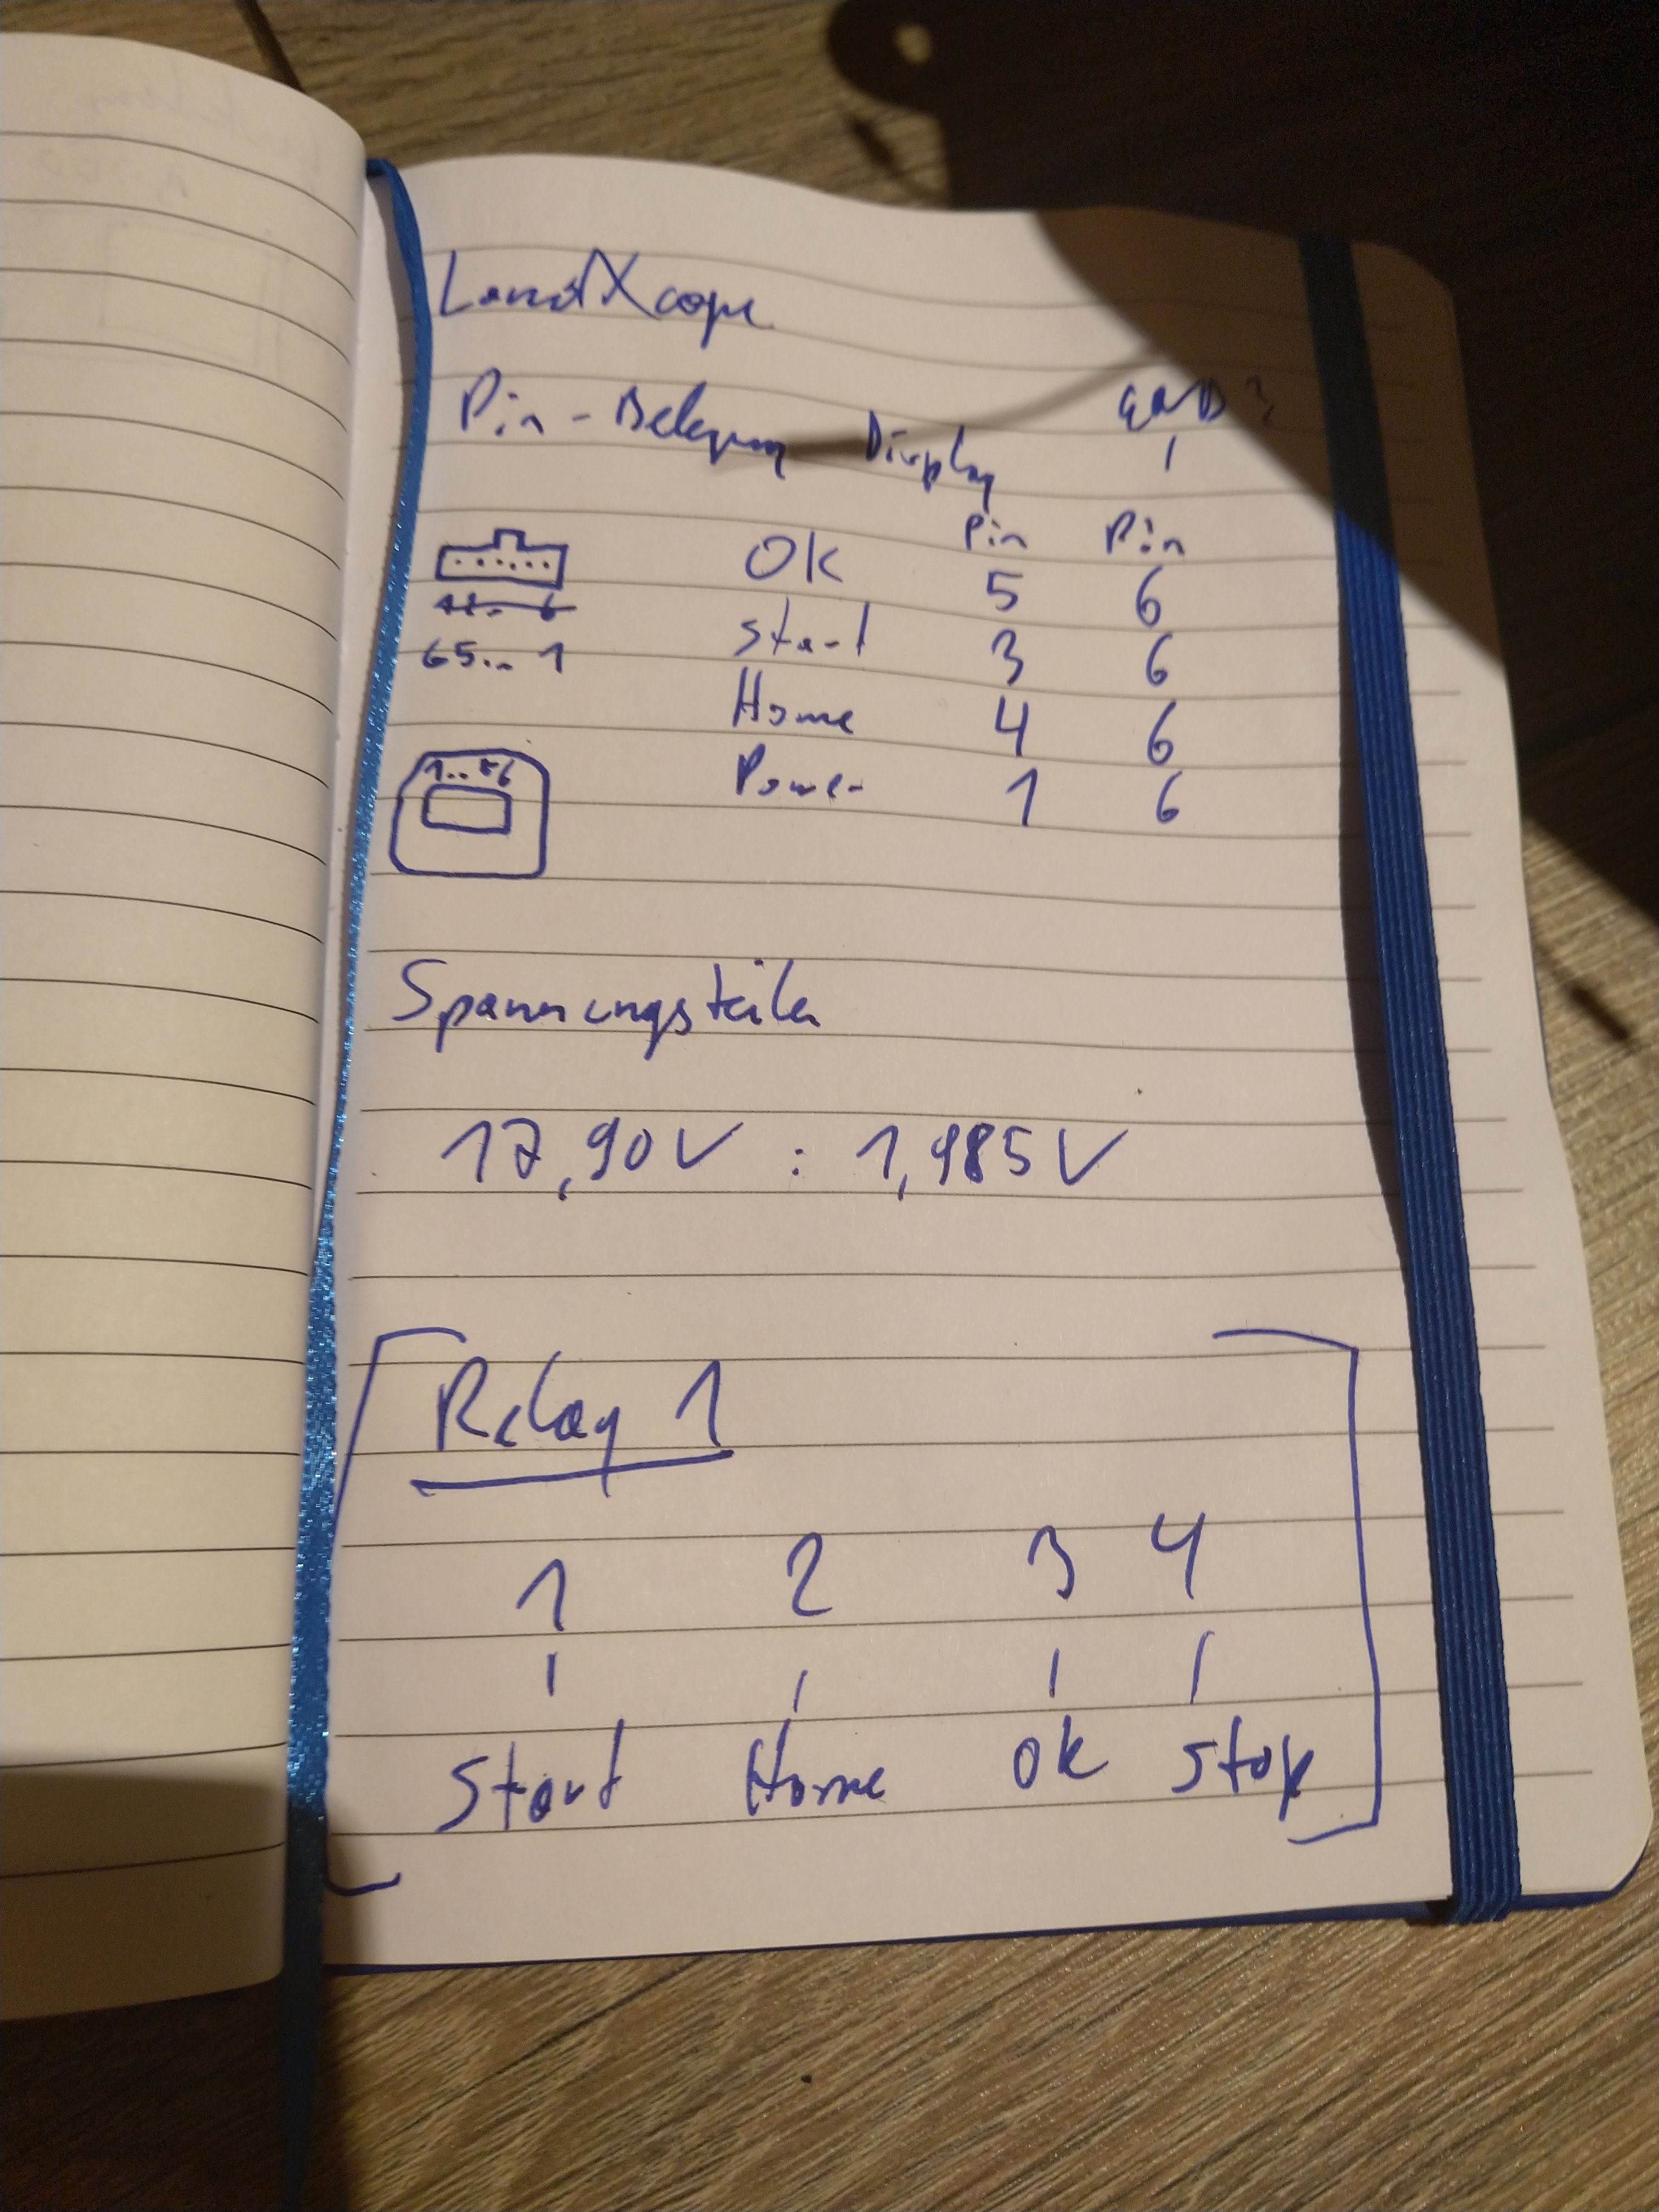 LandXcape
Pin-Belegung Display GND?
Pin Pin
OK 5 6
65.. 1
Start 3 6
Home 4 6
1..
Power 1 6
Spannungsteiler
17,90V : 1,985V
Relay 1
1 2 3 4
Start Home Ok Stop